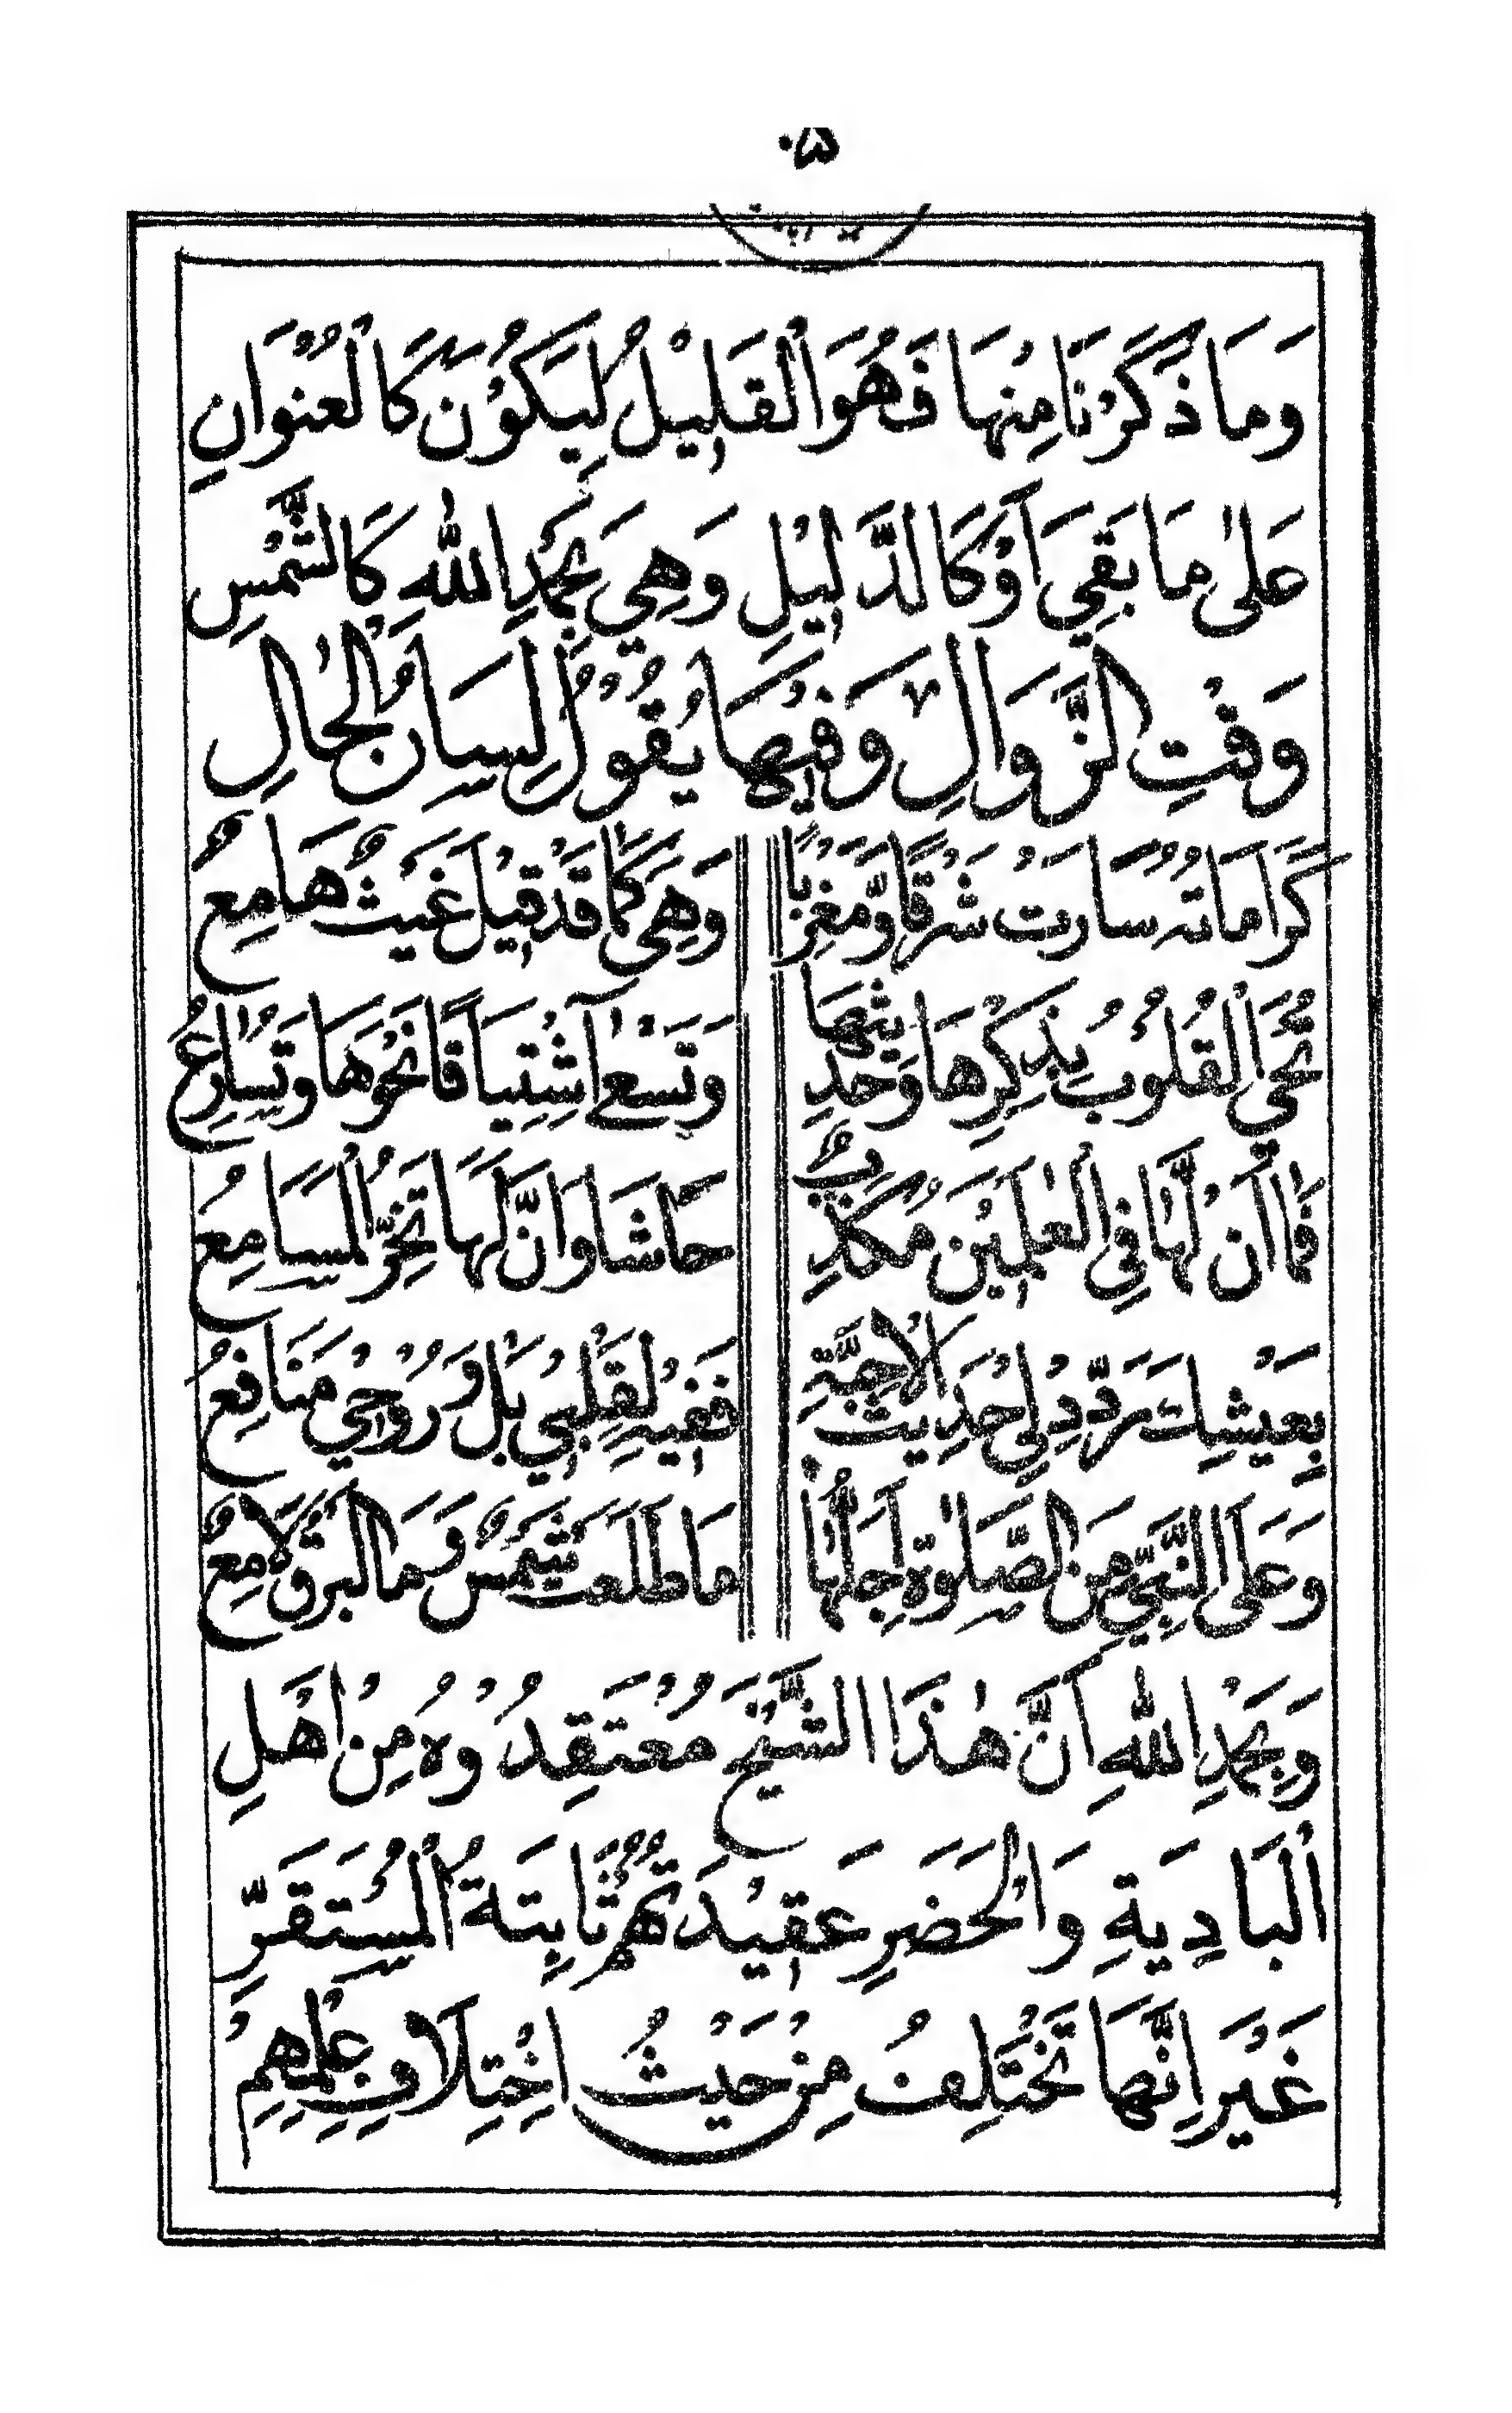 ۵۰
وَمَا ذَكَرْنَا مِنْهَا فَهُوَ الْقَلِيْلُ لِيَكُوْنَ كَالْعُنْوَانِ
عَلٰى مَا بَقِيَ اَوْ كَالدَّلِيْلِ وَهِيَ بِحَمْدِ اللّٰهِ كَالشَّمْسِ
وَقْتِ الزَّوَالِ وَفِيْهَا يَقُوْلُ لِسَانُ الْحَالِ
كَرَامَاتُهُ سَارَتْ شَرْقًا وَّمَغْرِبًا وَهِيَ كَمَا قَدْ قِيْلَ غَيْثٌ هَامِعٌ
تُحْيِي الْقُلُوْبُ بِذِكْرِهَا وَحَدِيْثِهَا وَتَسْعٰى اشْتِيَاقًا نَحْوَهَا وَتُسَارِعُ
فَمَا اَنْ لَهَا فِي الْعٰلَمِيْنَ مُكَذِّبٌ حَاشَا وَاَنَّ لَهَا تَخِرُّ الْمَسَامِعُ
بِعَيْشِكَ رَدِّدْ لِيْ حَدِيْثَ الْاَحِبَّةِ فَفِيْهِ لِقَلْبِيْ بَلْ وَرُوْحِيْ مَنَافِعُ
وَعَلَى النَّبِيِّ مِنَ الصَّلٰوةِ اَجَلُّهَا مَا طَلَعَتْ شَمْسٌ وَمَا الْبَرْقُ لَامِعٌ
وَبِحَمْدِ اللّٰهِ اَنَّ هٰذَا الشَّيْخَ مُعْتَقِدُوْهُ مِنْ اَهْلِ
الْبَادِيَةِ وَالْحَضَرِ عَقِيْدَتُهُمْ ثَابِتَةُ الْمُسْتَقَرِّ
غَيْرَ اِنَّهَا تَخْتَلِفُ مِنْ حَيْثُ اخْتِلَافِ عِلْمِهِمْ